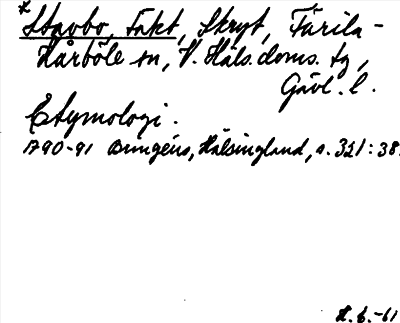 * Stavbo, Takt, Skryt, Färila-
Kårböle sn, V. Häls. doms. tg,
Gävl. l.
Etymologi.
1790-91 Bungéus, Hälsingland, s. 321:38.
H. G. -61